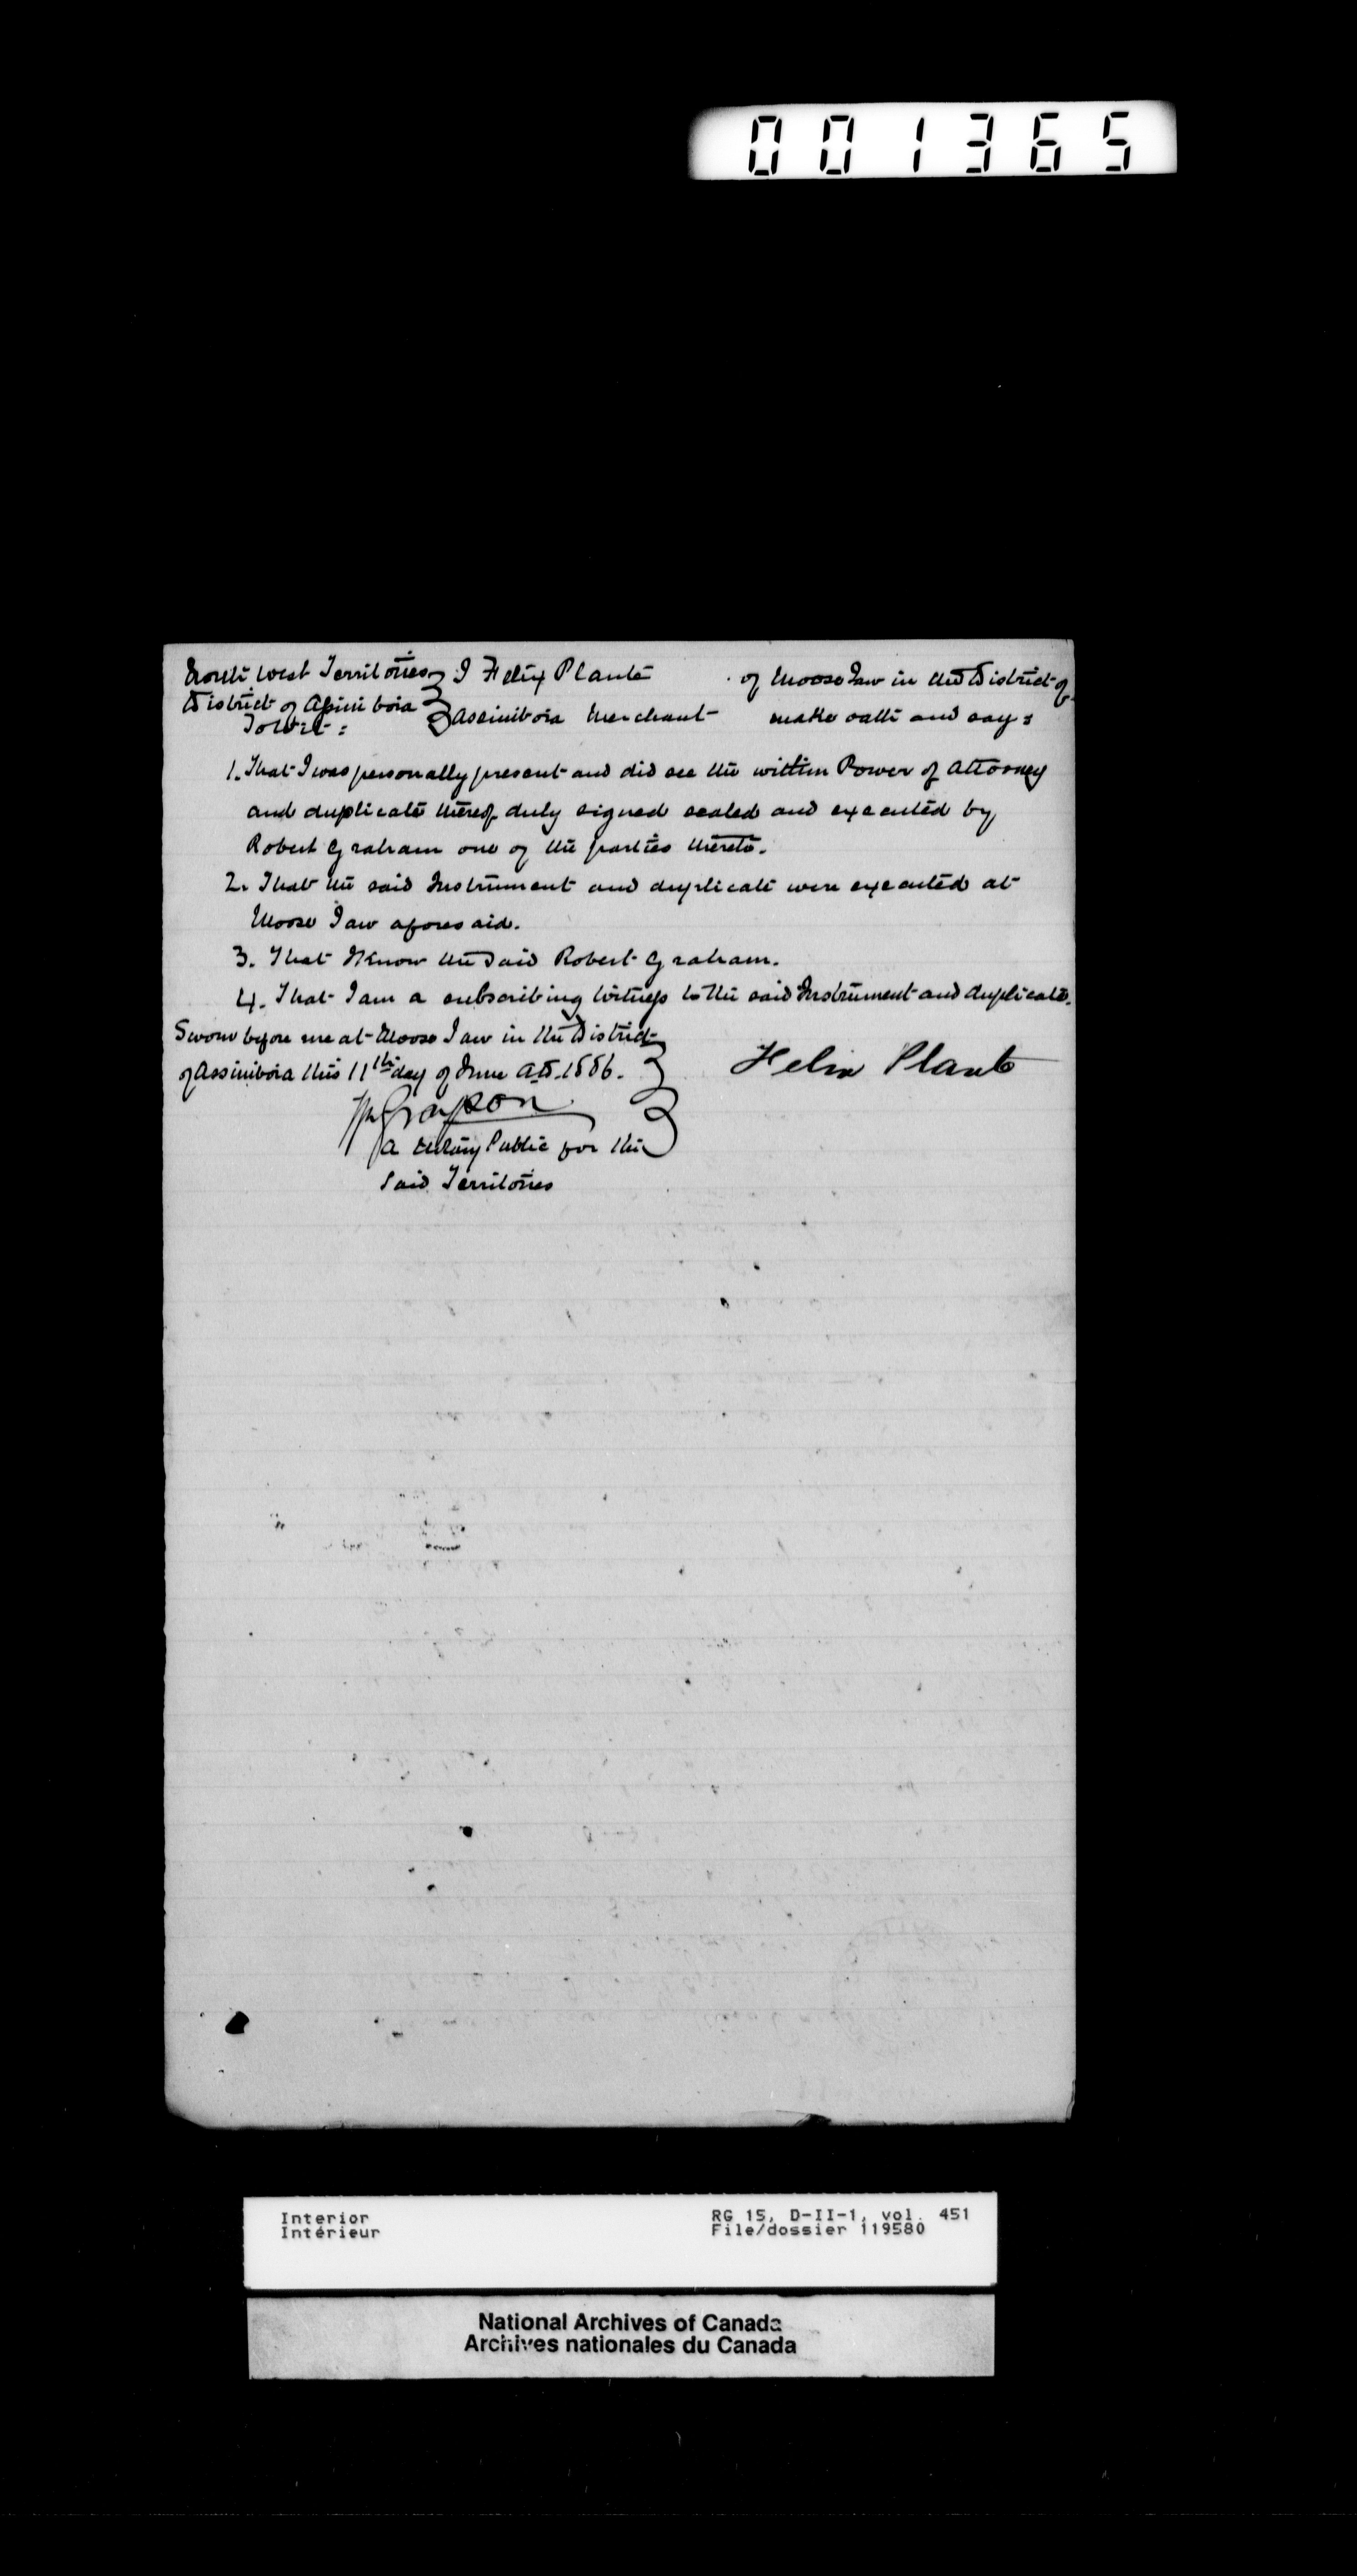 001365
North West Territories } I Felix Plante of Moose Jaw in the District of
District of Assiniboia } Assiniboia Merchant make oath and say:
To Wit:
1. That I was personally present and did see the within Power of Attorney
and duplicate thereof duly signed sealed and executed by
Robert Graham one of the parties thereto.
2. That the said Instrument and duplicate were executed at
Moose Jaw aforesaid.
3. That I know the said Robert Graham.
4. That I am a subscribing witness to the said Instrument and duplicate.
Sworn before me at Moose Jaw in the District
of Assiniboia this 11th day of June A.D. 1886. } Felix Plante
Grayson
A Notary Public for the
Said Territories
Interior RG 15, D-II-1, vol. 451
Intérieur File/dossier 119580
National Archives of Canada
Archives nationales du Canada